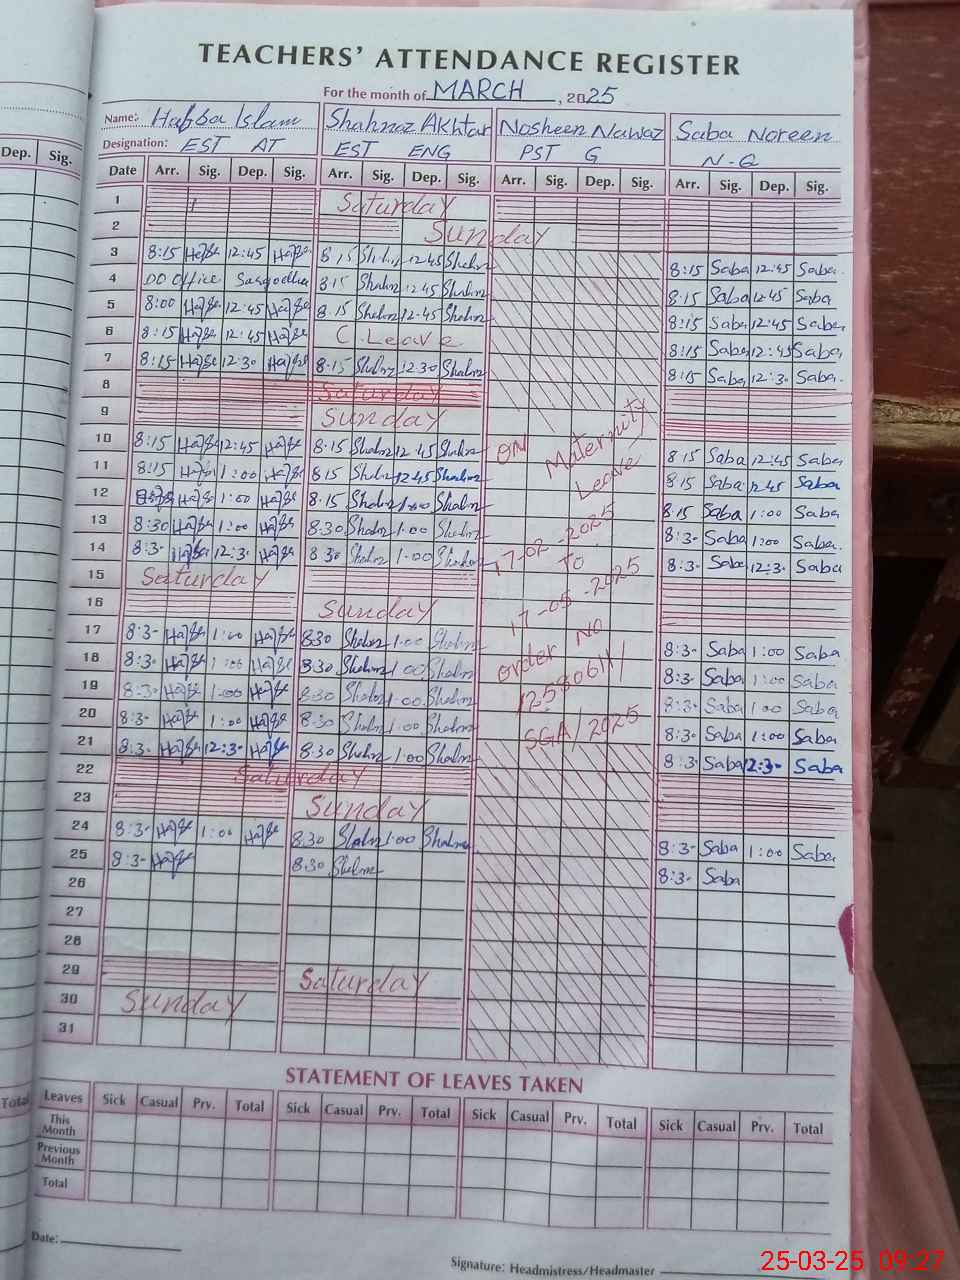 TEACHERS' ATTENDANCE REGISTER
For the month of MARCH, 2025
Name: Hafba Islam Shahnaz Akhtar Nosheen Nawaz Saba Noreen
Designation: EST AT EST ENG PST G N-G
Dep. Sig. Date Arr. Sig. Dep. Sig. Arr. Sig. Dep. Sig. Arr. Sig. Dep. Sig. Arr. Sig. Dep. Sig.
1 Saturday
2 Sunday
3 8:15 12:45 8.15 12.45 8:15 Saba 12:45 Saba
4 DO Office Sargodha 8.15 12.45 8.15 Saba 12.45 Saba
5 8:00 12:45 8.15 12.45 8:15 Saba 12:45 Saba
6 8:15 12:45 C. Leave 8:15 Saba 12:45 Saba
7 8:15 12:30 8.15 12.30 8:15 Saba 12:3- Saba
8 Saturday
9 Sunday
10 8:15 12:45 8.15 12.45 8.15 Saba 12:45 Saba
11 8:15 1:00 8.15 12.45 8.15 Saba 12.45 Saba
12 1:00 8.15 1:00 8.15 Saba 1:00 Saba
13 8:30 1:00 8.30 1.00 8:3- Saba 1:00 Saba
14 8:3- 12:3- 8.30 1.00 8:3- Saba 12:3- Saba
15 Saturday
16 Sunday
17 8:3- 1:00 8.30 Shahnz 1.00 Shahnz 8:3- Saba 1:00 Saba
18 8:3- 1:00 8.30 Shahnz 1.00 Shahnz 8:3- Saba 1:00 Saba
19 8:3- 1:00 8.30 Shahnz 1.00 Shahnz 8:3- Saba 1.00 Saba
20 8:3- 1:00 8.30 Shahnz 1.00 Shahnz 8:3- Saba 1:00 Saba
21 8:3- 12:3- 8.30 Shahnz 1.00 Shahnz 8:3- Saba 12:3- Saba
22 Saturday
23 Sunday
24 8:3- 1:00 8.30 1.00 8:3- Saba 1:00 Saba
25 8:3- 8.30 8:3- Saba
26
27
28
29 Saturday
30 Sunday
31
ON Maternity
Leave
17-02-2025
To
17-05-2025
order No
SGA/2025
STATEMENT OF LEAVES TAKEN
Total Leaves Sick Casual Prv. Total Sick Casual Prv. Total Sick Casual Prv. Total Sick Casual Prv. Total
This Month
Previous Month
Total
Date:
Signature: Headmistress/Headmaster
25-03-25 09:27